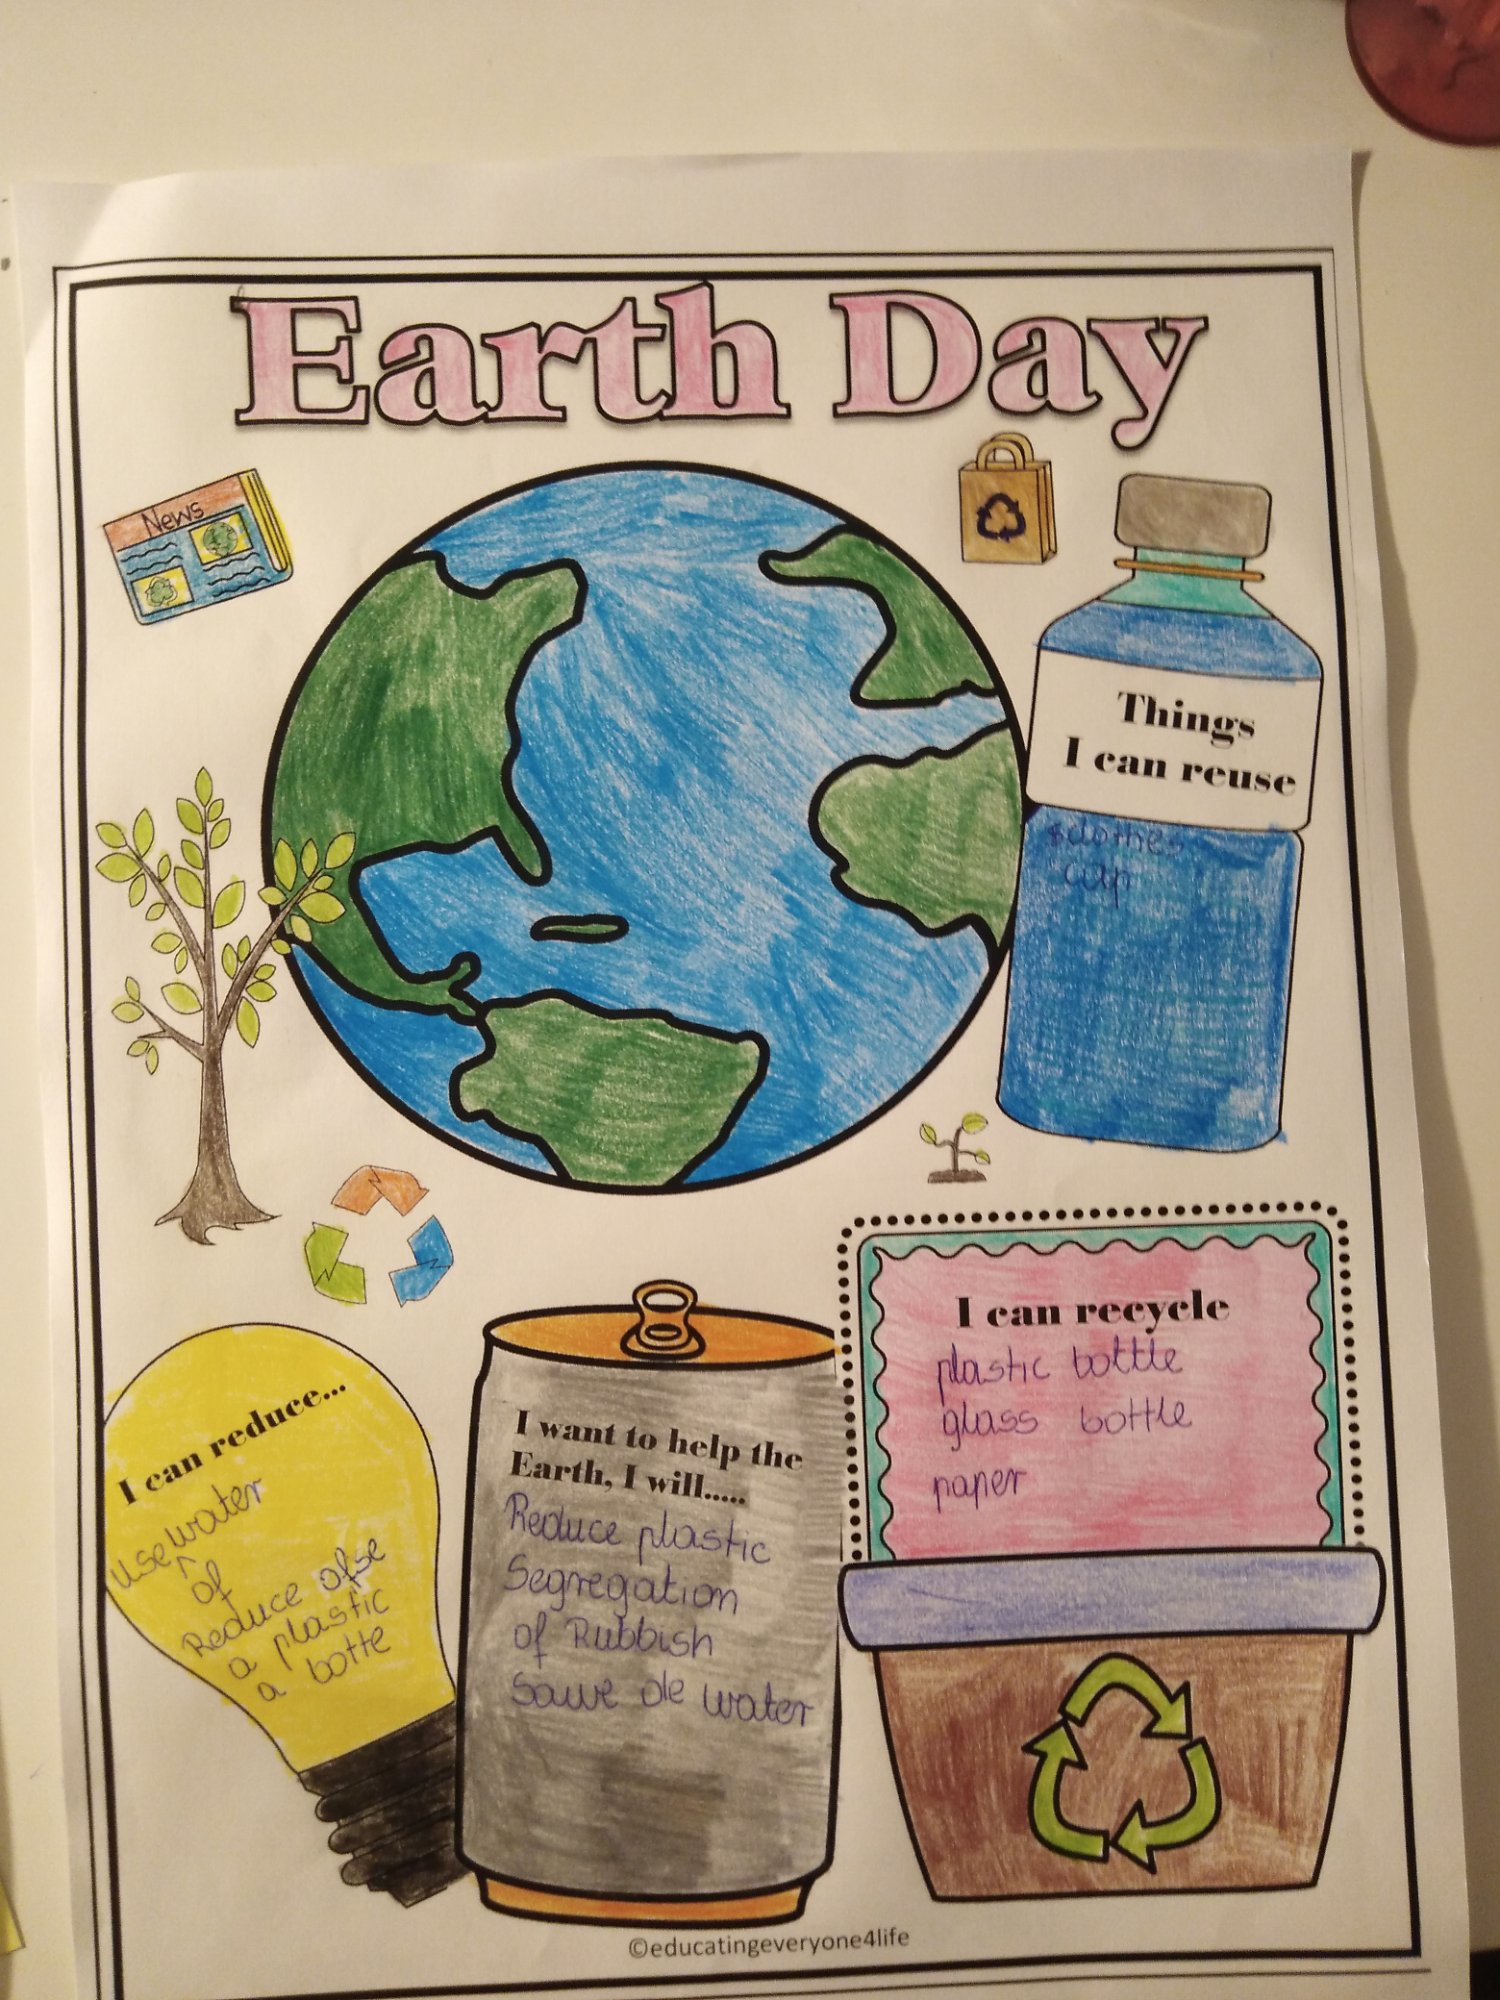 Earth Day
News
Things
I can reuse
clothes
cup
I can recycle
plastic bottle
glass bottle
paper
I can reduce...
use water
of
Reduce ofse
a plastic
a botte
I want to help the
Earth, I will.....
Reduce plastic
Segregation
of Rubbish
Sauve ole water
©educatingeveryone4life